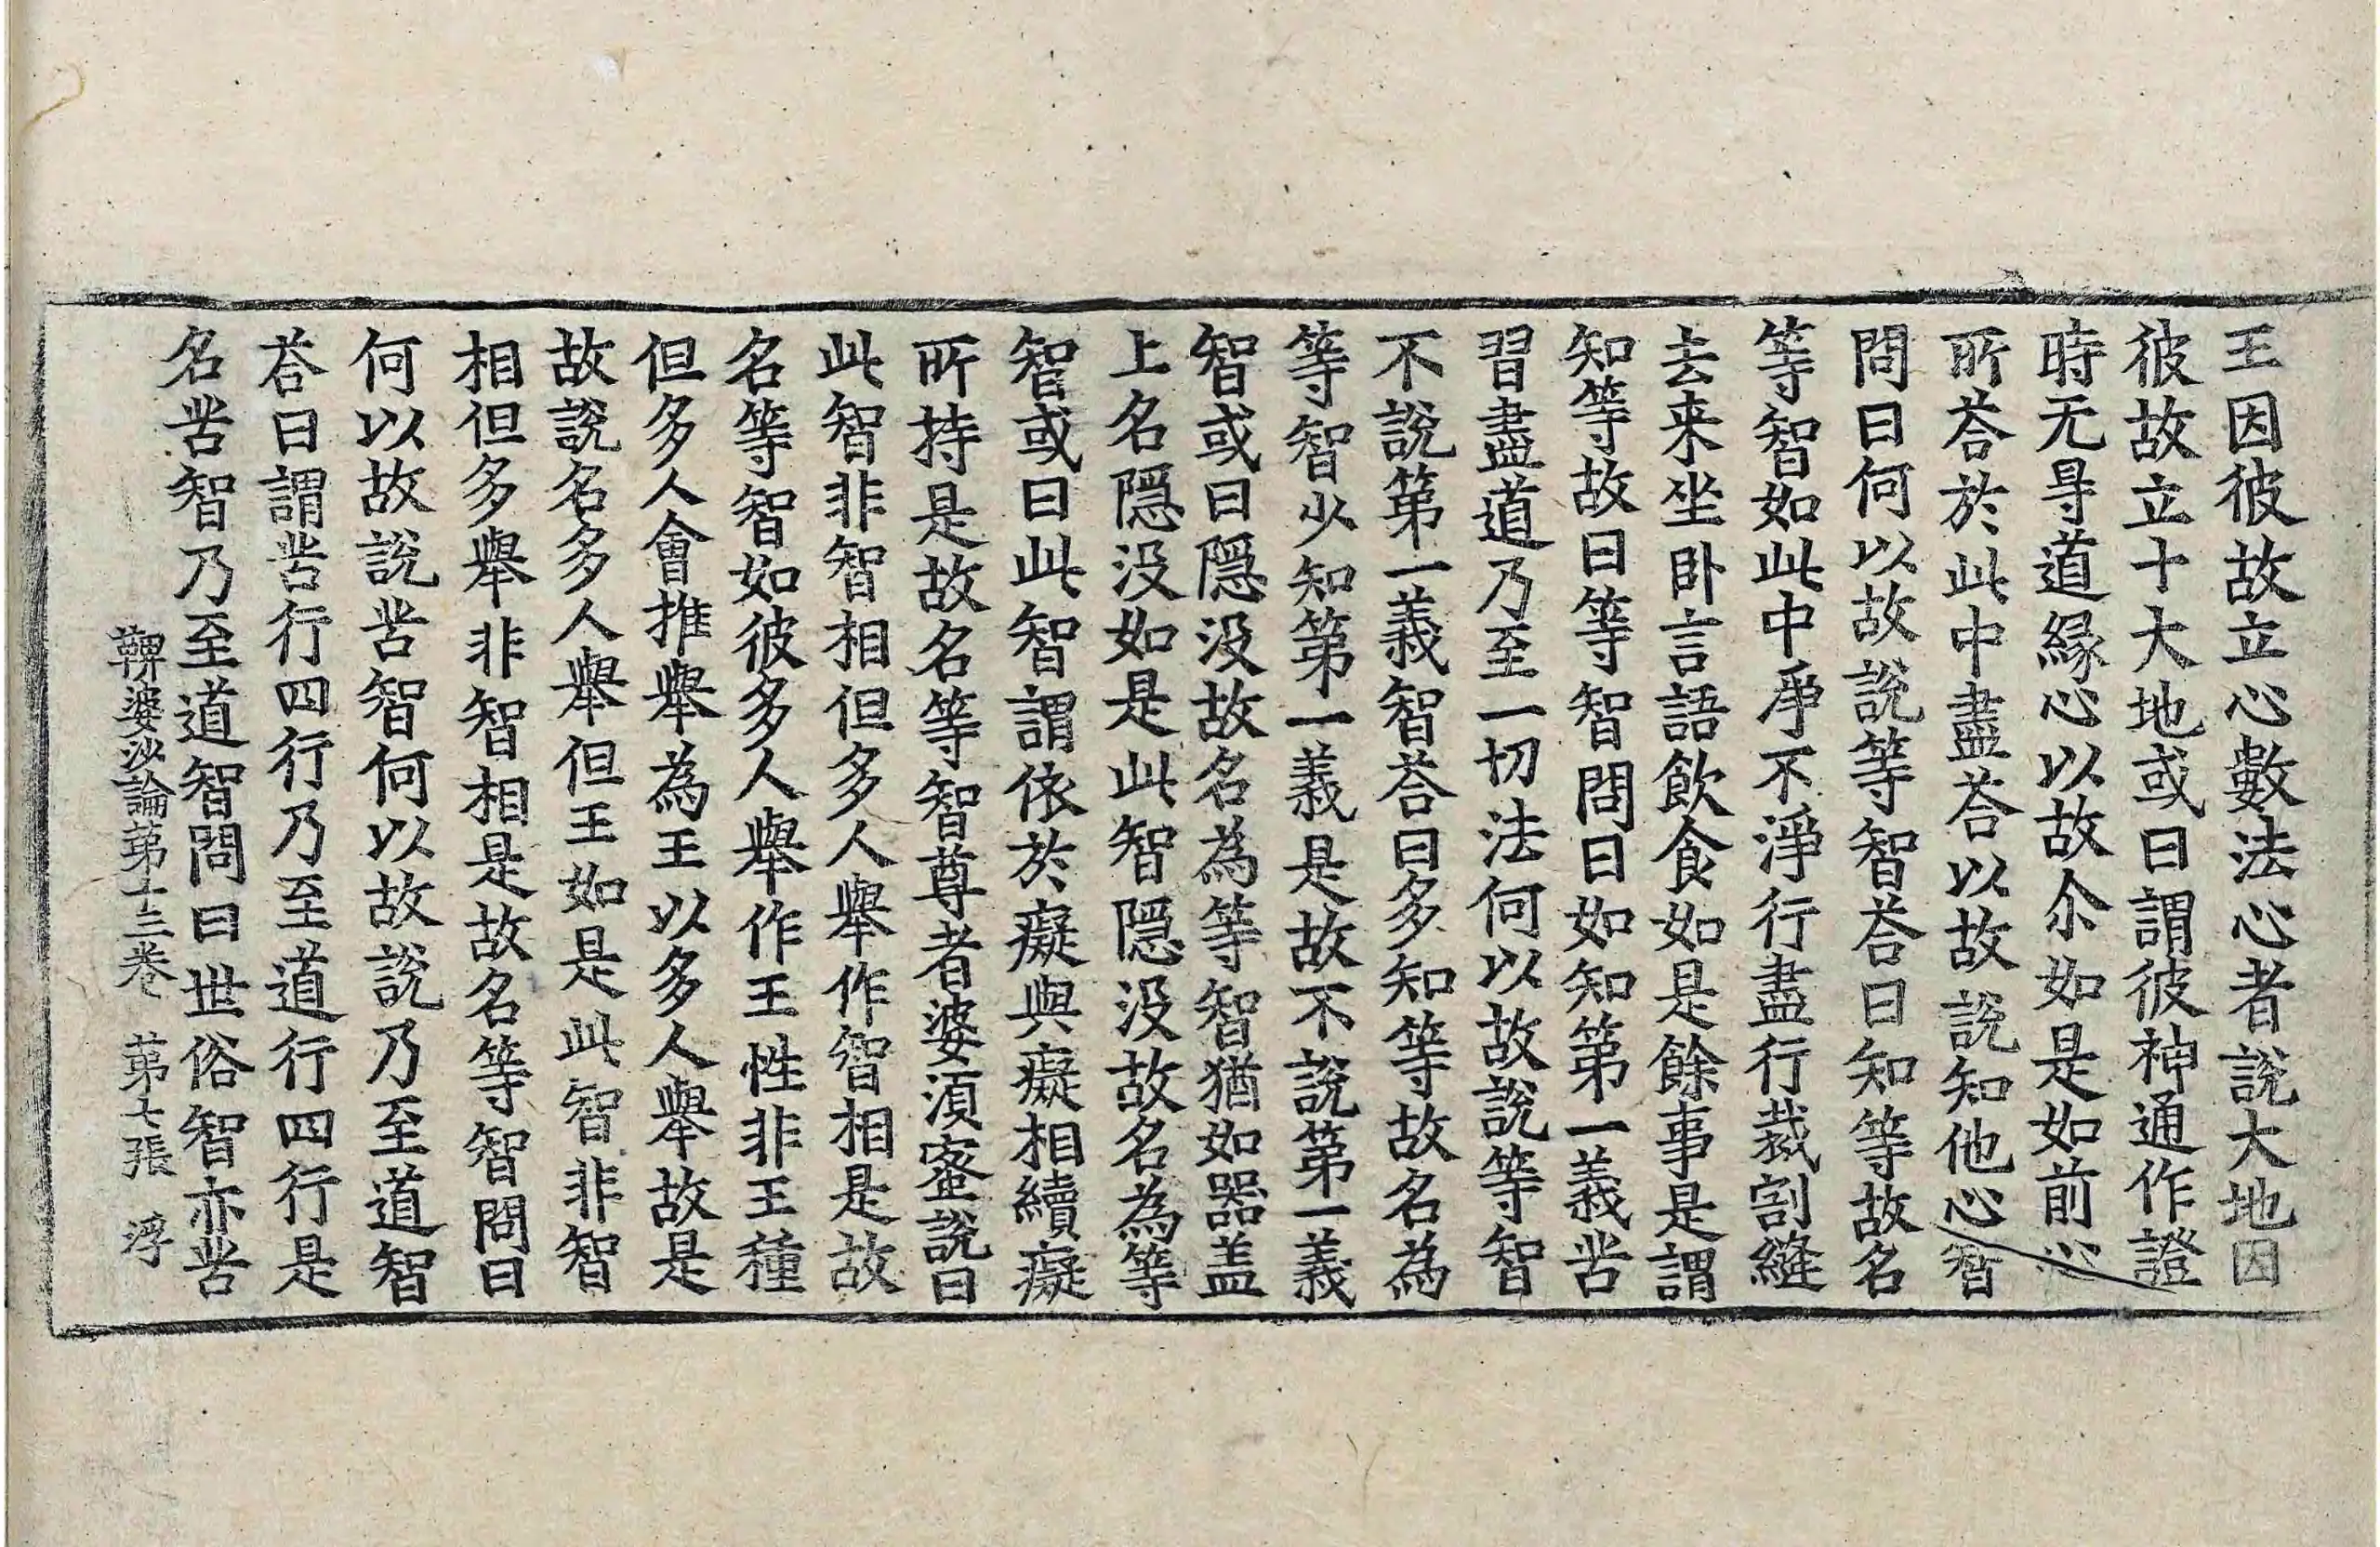 王因彼故立心數法心者說大地因
彼故立十大地或曰謂彼神通作證
時无㝵道緣心以故尒如是如前心
所荅於此中盡荅以故說知他心智
問曰何以故說等智荅曰知等故名
等智如此中爭不淨行盡行裁割縫
去来坐卧言語飲食如是餘事是謂
知等故曰等智問曰如知第一義苦
習盡道乃至一切法何以故說等智
不說第一義智荅曰多知等故名為
等智少知第一義是故不說第一義
智或曰隱没故名為等智猶如器盖
上名隱没如是此智隱没故名為等
智或曰此智謂依於癡與癡相續癡
所持是故名等智尊者婆湏蜜說曰
此智非智相但多人舉作智相是故
名等智如彼多人舉作王性非王種
但多人會推舉為王以多人舉故是
故說名多人舉但王如是此智非智
相但多舉非智相是故名等智問曰
何以故說苦智何以故說乃至道智
荅曰謂苦行四行乃至道行四行是
名苦智乃至道智問曰世俗智亦苦
鞞婆沙論第十三卷　第七張　浮